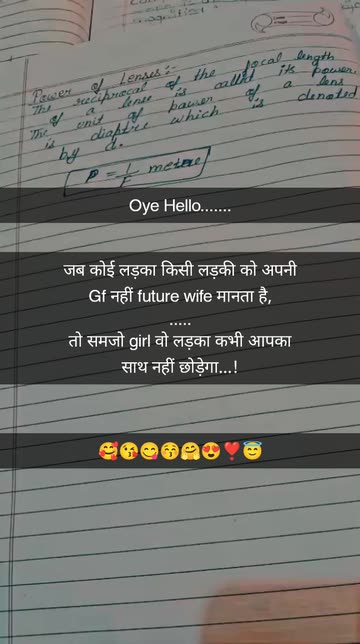 magnetism
Power of Lenses:-
The reciprocal of the focal length
of a lense is called its power.
The unit of pawer of a lens
is diaptre which is denoted
by d.
P = 1/F metre
Oye Hello.......
जब कोई लड़का किसी लड़की को अपनी
Gf नहीं future wife मानता है,
.....
तो समजो girl वो लड़का कभी आपका
साथ नहीं छोड़ेगा...!
🥰😘😋😚🤗😍❣️😇